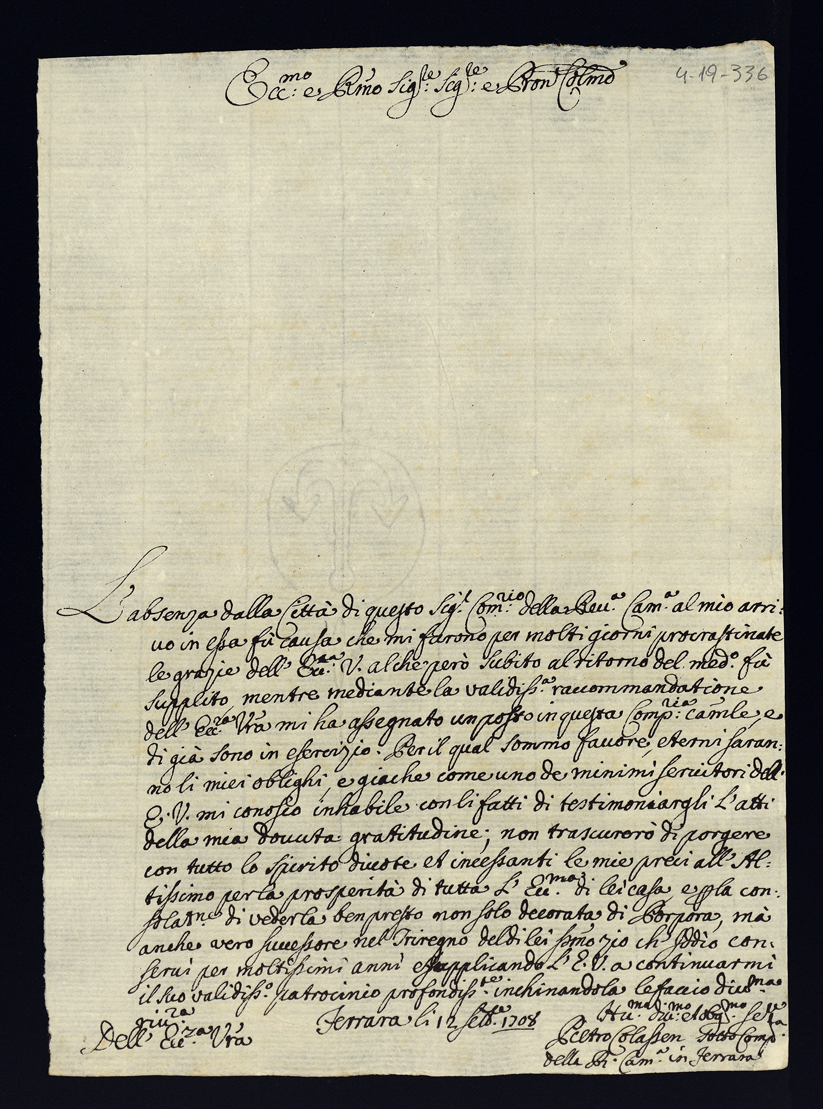 4-19-336
Ecc:mo e Rmo Sig:re Sig:re e Pron Colmo
L'absenza dalla Città di questo Sig:r Com:rio della Reu:a Cam:a al mio arri:
uo in essa fù causa che mi furono per molti giorni procrastinate
le grazie dell' Ecc:za V. al che però subito al ritorno del med:o fù
supplito, mentre mediante la validiss:a raccommandatione
dell' Ecc:za Vra mi ha assegnato un posto in questa Comp:ria camle, e
di già sono in esercizio. Per il qual sommo fauore, eterni saran:
no li miei oblighi, e giache come uno de minimi seruitori dell'
E. V. mi conosco inhabile con li fatti di testimoniargli l'atti
della mia douuta gratitudine; non trascurerò di porgere
con tutto lo spirito diuote et incessanti le mie preci all' Al-
tissimo per la prosperità di tutta l' Ecc:ma di lei casa e pla con:
solatne di vederla ben presto non solo decorata di Porpora, mà
anche vero successore nel Triregno del di lei ssmo zio ch' Iddio con:
serui per moltissimi anni e supplicando l' E. V. a continuarmi
il suo validiss:o patrocinio profondiss:te inchinandola le faccio diuo:ma
giu:ra
Dell' Ecc:za Vra
Ferrara li 12 Setb:e 1708
Hu:ma diu:mo et obg:mo se:re
Pietro Colassen Sotto Comp:ta
della R: Cam:a in Ferrara